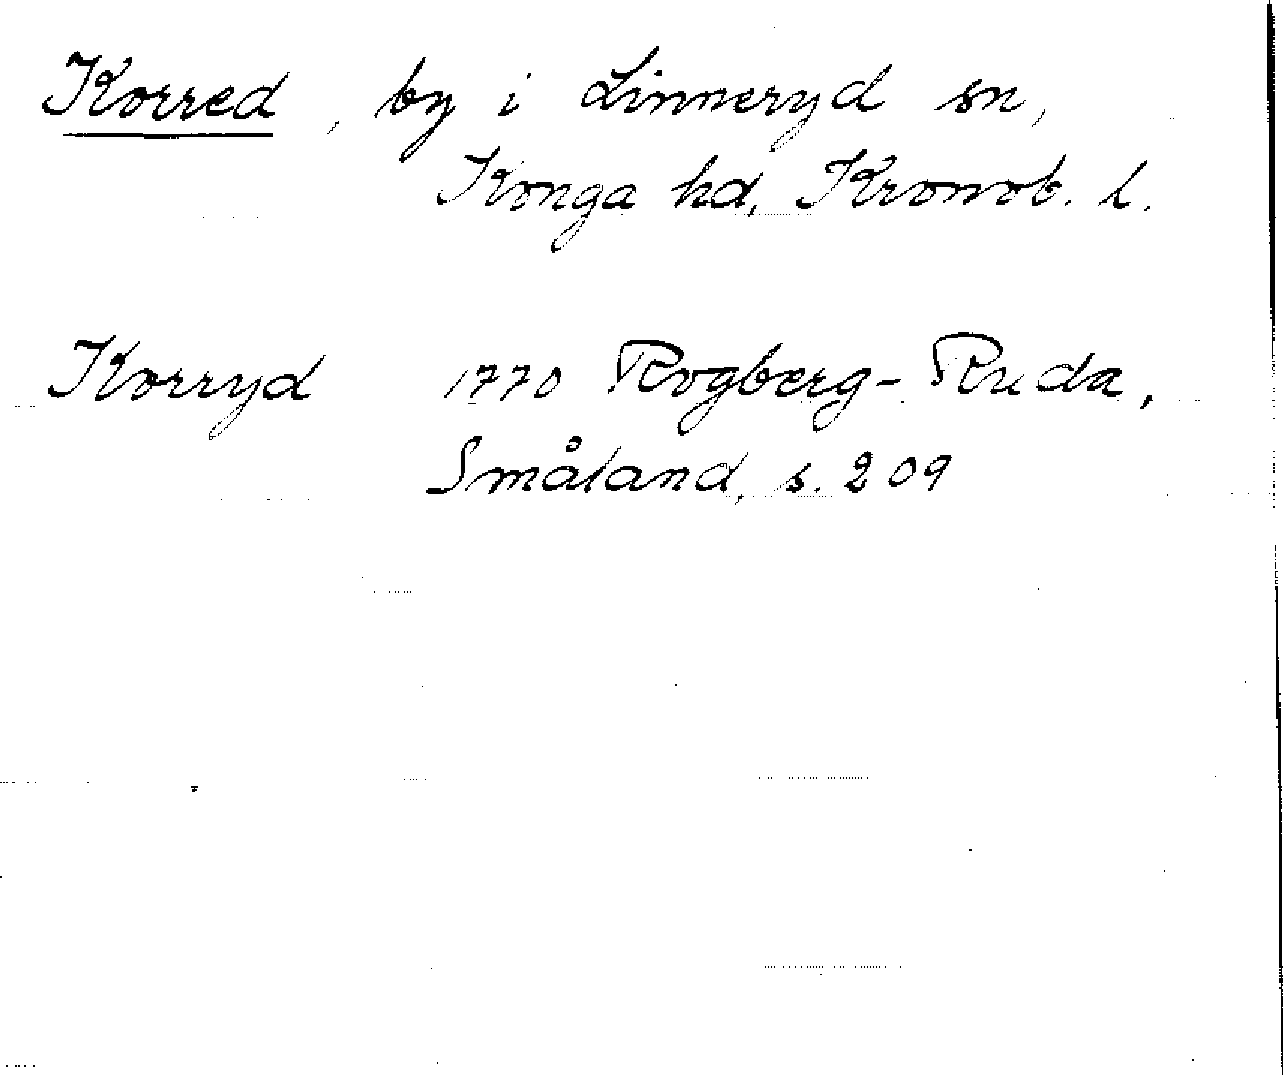 Korred, by i Linneryd sn,
Konga hd, Kronob. l.
Korryd 1770 Rogberg-Ruda,
Småland, s. 209